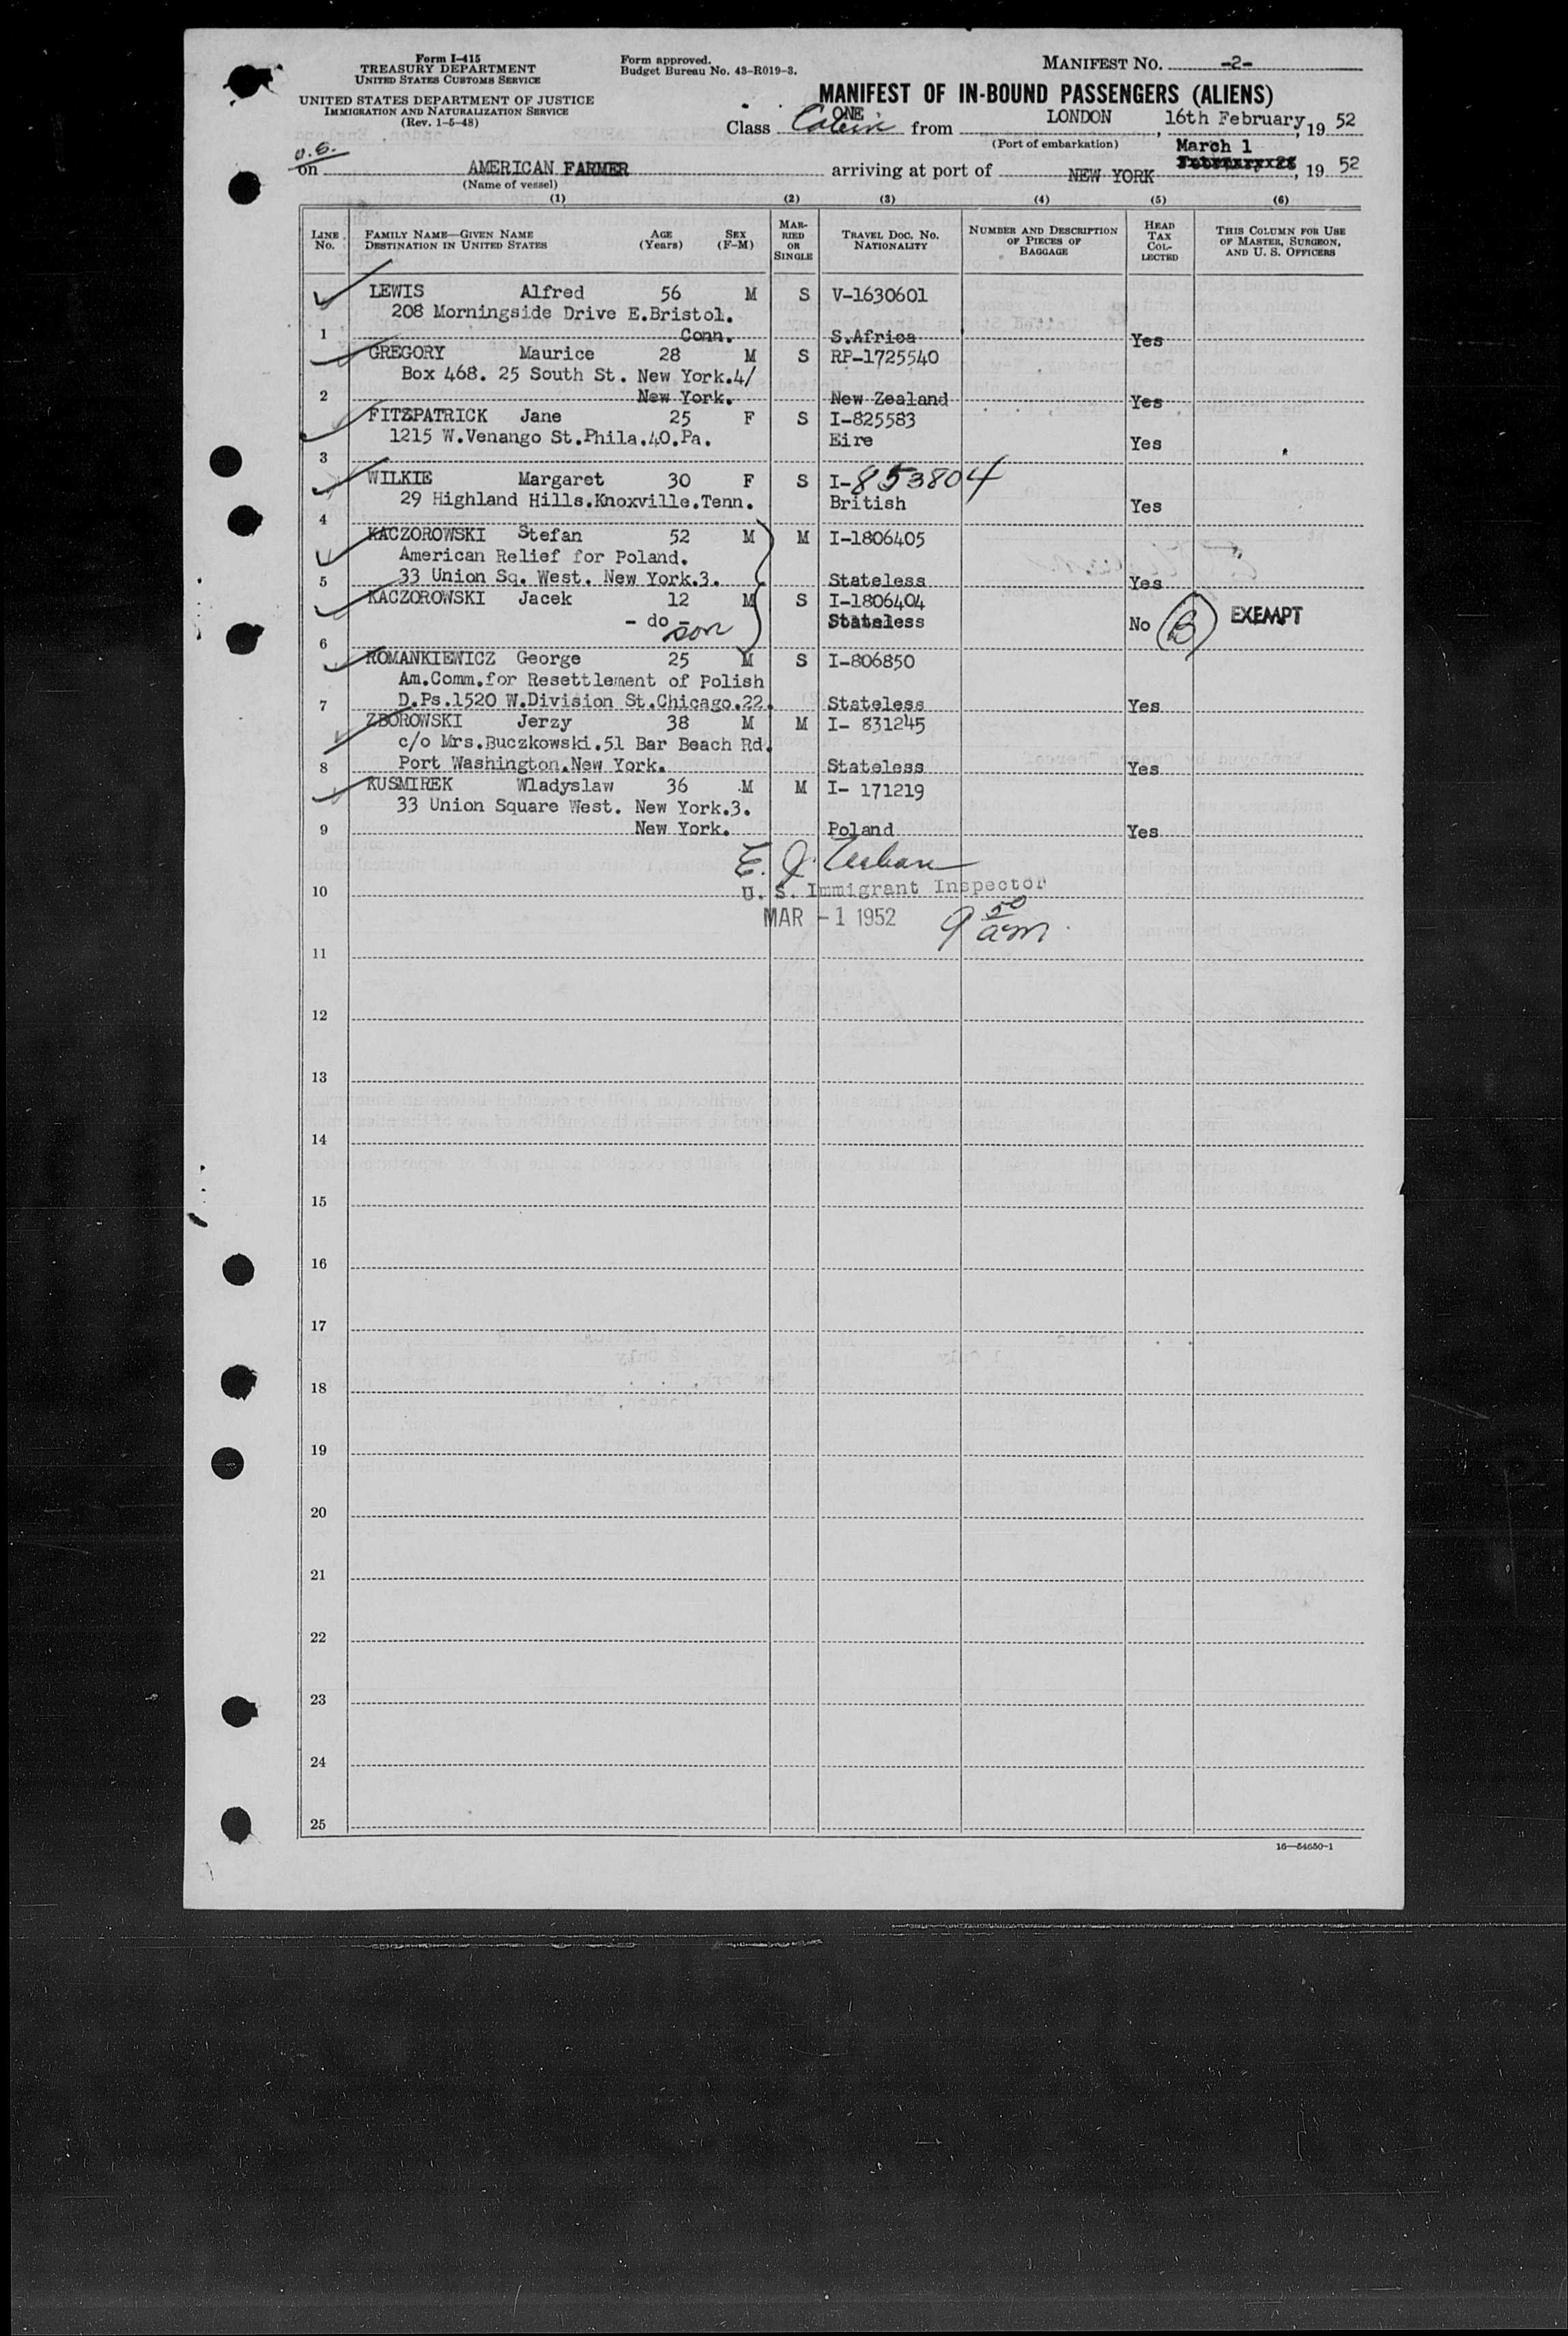 Form I-415
TREASURY DEPARTMENT
UNITED STATES CUSTOMS SERVICE
UNITED STATES DEPARTMENT OF JUSTICE
IMMIGRATION AND NATURALIZATION SERVICE
(Rev. 1-5-48)
Form approved.
Budget Bureau No. 43-R019-3.
MANIFEST No. -2-
MANIFEST OF IN-BOUND PASSENGERS (ALIENS)
ONE
Class Cabin from LONDON, 16th February, 19 52
(Port of embarkation)
March 1
on AMERICAN FARMER arriving at port of NEW YORK, 19 52
(Name of vessel)
(1) (2) (3) (4) (5) (6)
LINE No. FAMILY NAME—GIVEN NAME DESTINATION IN UNITED STATES AGE (Years) SEX (F-M) MARRIED OR SINGLE TRAVEL DOC. NO. NATIONALITY NUMBER AND DESCRIPTION OF PIECES OF BAGGAGE HEAD TAX COLLECTED THIS COLUMN FOR USE OF MASTER, SURGEON, AND U. S. OFFICERS
LEWIS Alfred 56 M S V-1630601
208 Morningside Drive E.Bristol.
1 Conn. S.Africa Yes
GREGORY Maurice 28 M S RP-1725540
Box 468. 25 South St. New York.4/
2 New York. New Zealand Yes
FITZPATRICK Jane 25 F S I-825583
1215 W.Venango St.Phila.40.Pa. Eire Yes
3
WILKIE Margaret 30 F S I-853804
29 Highland Hills.Knoxville.Tenn. British Yes
4
KACZOROWSKI Stefan 52 M M I-1806405
American Relief for Poland.
5 33 Union Sq. West. New York.3. Stateless Yes
KACZOROWSKI Jacek 12 M S I-1806404
- do - son Stateless No B EXEMPT
6
ROMANKIEWICZ George 25 M S I-806850
Am.Comm.for Resettlement of Polish
7 D.Ps.1520 W.Division St.Chicago.22. Stateless Yes
ZBOROWSKI Jerzy 38 M M I- 831245
c/o Mrs.Buczkowski.51 Bar Beach Rd.
8 Port Washington.New York. Stateless Yes
KUSMIREK Wladyslaw 36 M M I- 171219
33 Union Square West. New York.3.
9 New York. Poland Yes
E. J.
10 U. S. Immigrant Inspector
MAR -1 1952 9 50 am
11
12
13
14
15
16
17
18
19
20
21
22
23
24
25
16—54650-1